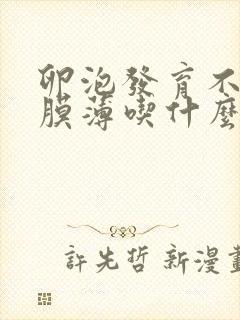 卵泡發育不
膜薄喫什麼
許先哲 新漫畫